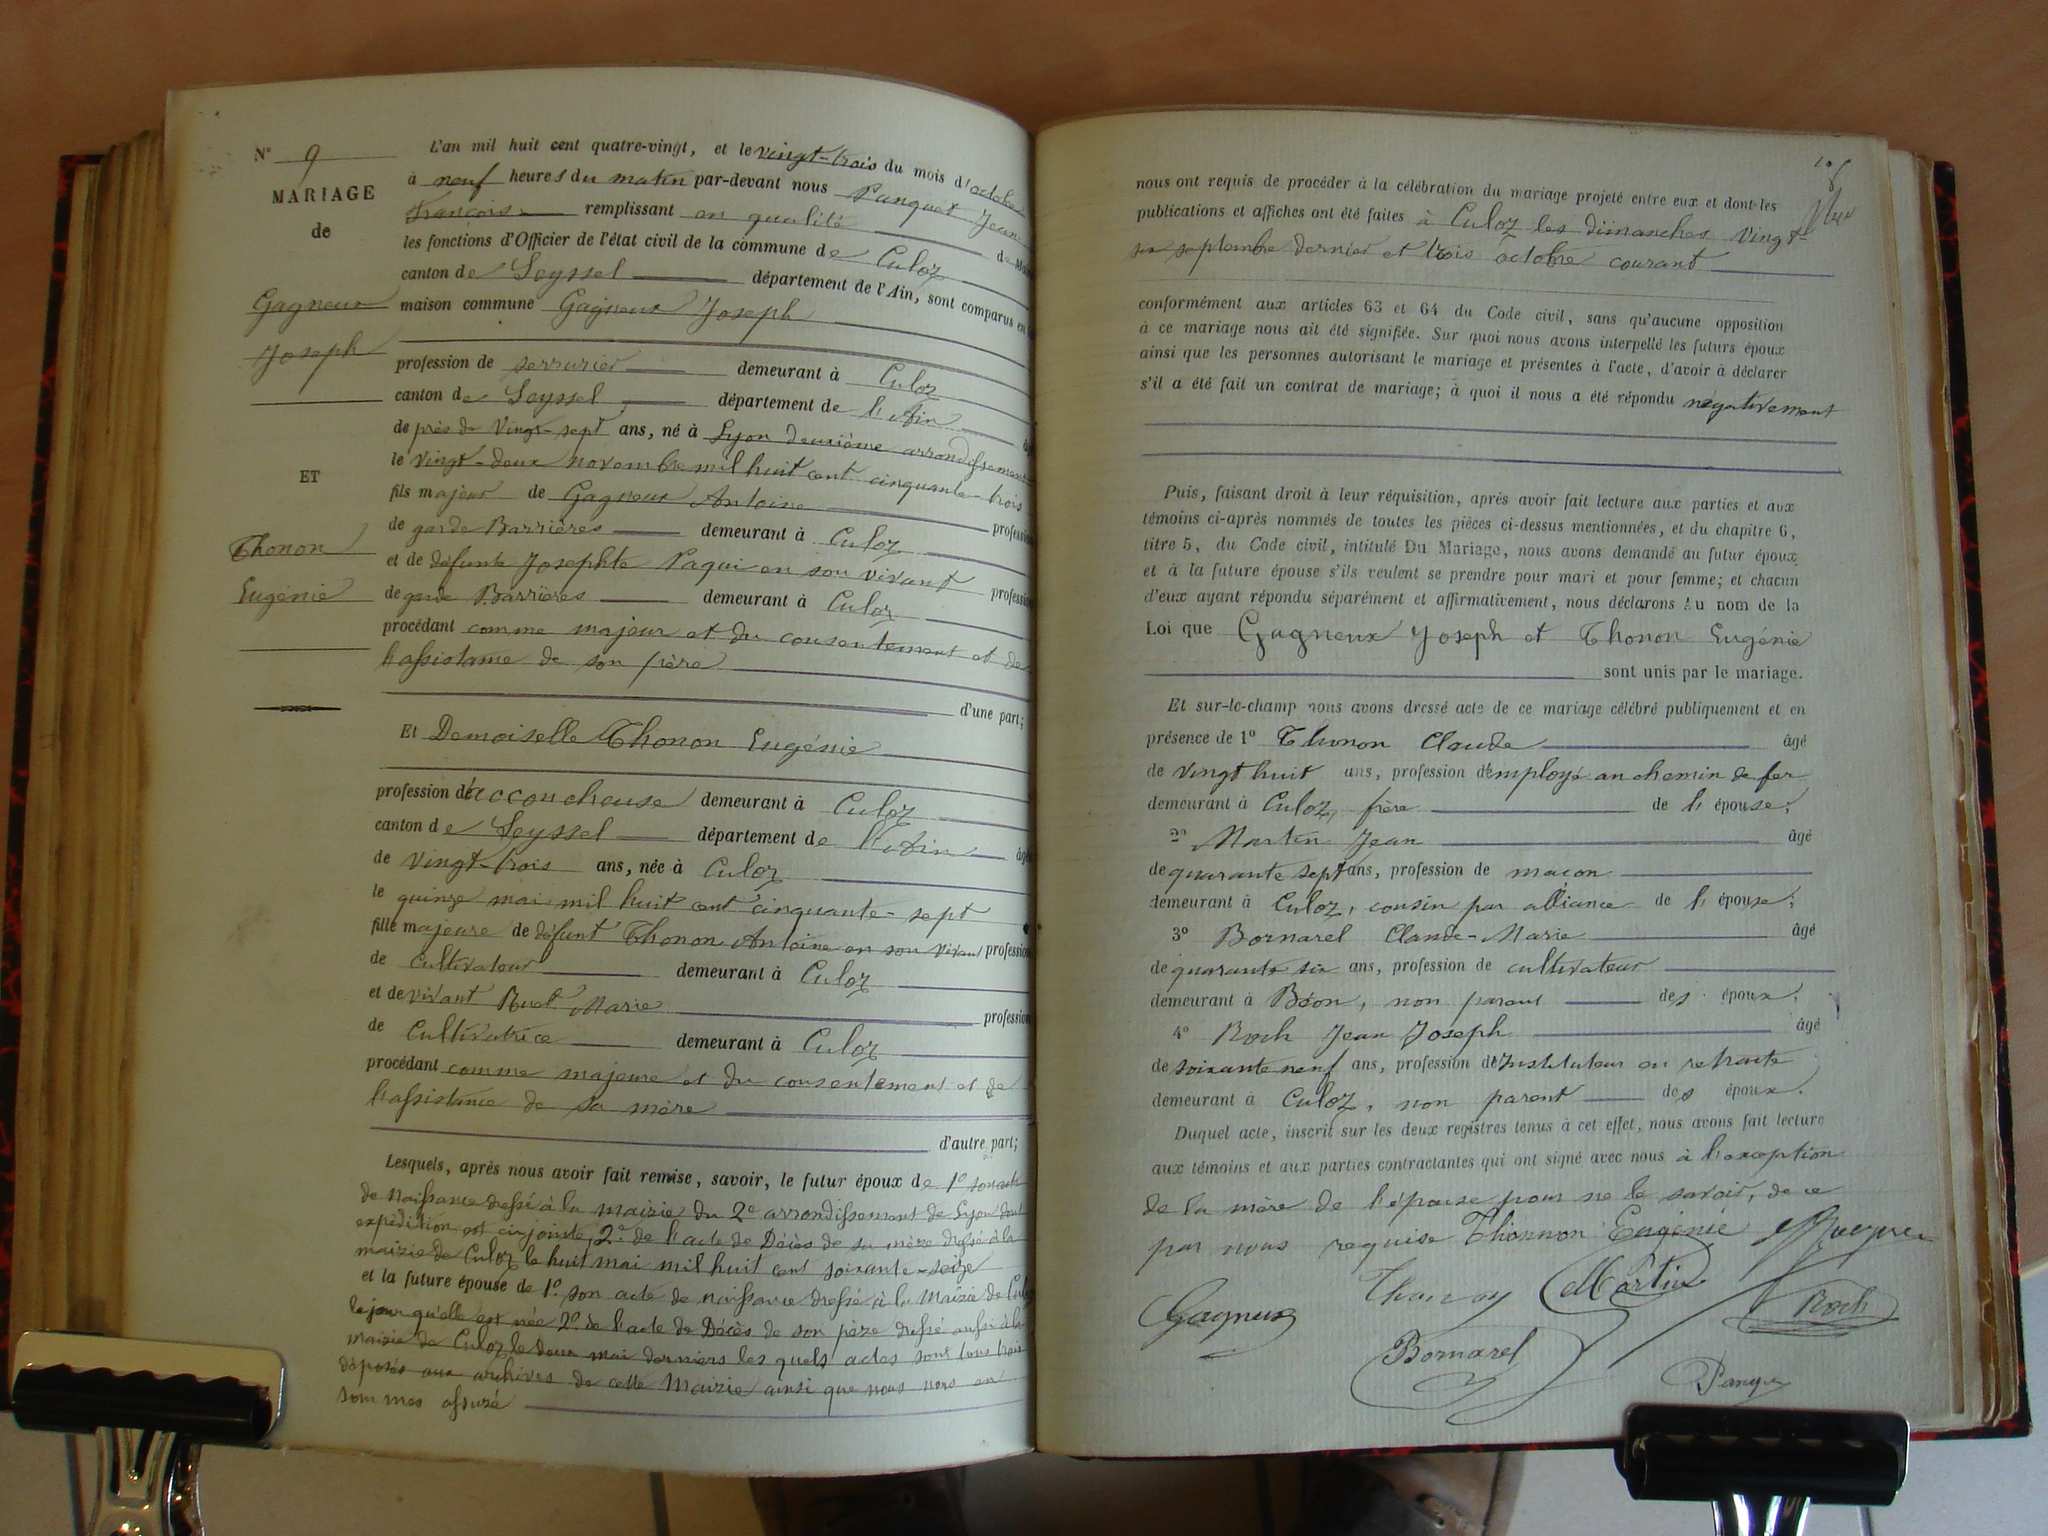 N° 9
MARIAGE
de
Gagneux
Joseph
ET
Thonon
Eugénie
L'an mil huit cent quatre-vingt, et le vingt-trois du mois d'octobre
à neuf heures du matin par-devant nous Panquet Jean
François remplissant en qualité de
les fonctions d'Officier de l'état civil de la commune de Culoz
canton de Seyssel département de l'Ain, sont comparus en
maison commune Gagneux Joseph
profession de serrurier demeurant à Culoz
canton de Seyssel département de l'Ain
de près de vingt-sept ans, né à Lyon deuxième arrondissement
le vingt-deux novembre mil huit cent cinquante-trois
fils majeur de Gagneux Antoine profession
de garde Barrières demeurant à Culoz
et de défunte Josephte Paqui en son vivant profession
de garde Barrières demeurant à Culoz
procédant comme majeur et du consentement et de
l'assistance de son père
d'une part;
Et Demoiselle Thonon Eugénie
profession d'accoucheuse demeurant à Culoz
canton de Seyssel département de l'Ain âgée
de vingt-trois ans, née à Culoz
le quinze mai mil huit cent cinquante-sept
fille majeure de défunt Thonon Antoine en son vivant profession
de cultivateur demeurant à Culoz
et de vivant Marie profession
de Cultivatrice demeurant à Culoz
procédant comme majeure et du consentement et de
l'assistance de sa mère
d'autre part;
Lesquels, après nous avoir fait remise, savoir, le futur époux de 1° son acte
de naissance dressé à la mairie du 2e arrondissement de Lyon dont
expédition est cijointe, 2° de l'acte de Décès de sa mère dressé à la
mairie de Culoz le huit mai mil huit cent soixante-seize
et la future épouse de 1° son acte de naissance dressé à la Mairie de Culoz
le jour qu'elle est née 2° de l'acte de Décès de son père dressé aussi à la
mairie de Culoz le deux mai derniers les quels actes sont tous trois
déposés aux archives de cette Mairie ainsi que nous nous en
sommes assuré
nous ont requis de procéder à la célébration du mariage projeté entre eux et dont les
publications et affiches ont été faites à Culoz les dimanches vingt-
six septembre dernier et trois octobre courant
conformément aux articles 63 et 64 du Code civil, sans qu'aucune opposition
à ce mariage nous ait été signifiée. Sur quoi nous avons interpellé les futurs époux
ainsi que les personnes autorisant le mariage et présentes à l'acte, d'avoir à déclarer
s'il a été fait un contrat de mariage; à quoi il nous a été répondu négativement
Puis, faisant droit à leur réquisition, après avoir fait lecture aux parties et aux
témoins ci-après nommés de toutes les pièces ci-dessus mentionnées, et du chapitre 6,
titre 5, du Code civil, intitulé Du Mariage, nous avons demandé au futur époux
et à la future épouse s'ils veulent se prendre pour mari et pour femme; et chacun
d'eux ayant répondu séparément et affirmativement, nous déclarons Au nom de la
Loi que Gagneux Joseph et Thonon Eugénie
sont unis par le mariage.
Et sur-le-champ nous avons dressé acte de ce mariage célébré publiquement et en
présence de 1° Thonon Claude âgé
de vingt huit ans, profession d'employé au chemin de fer
demeurant à Culoz, frère de l'épouse;
2° Martin Jean âgé
de quarante sept ans, profession de maçon
demeurant à Culoz, cousin par alliance de l'épouse;
3° Bornarel Claude-Marie âgé
de quarante six ans, profession de cultivateur
demeurant à Béon, non parent des époux;
4° Roch Jean Joseph âgé
de soixante neuf ans, profession d'Instituteur en retraite
demeurant à Culoz, non parent des époux.
Duquel acte, inscrit sur les deux registres tenus à cet effet, nous avons fait lecture
aux témoins et aux parties contractantes qui ont signé avec nous à l'exception
de la mère de l'épouse pour ne le savoir, de ce
par nous requise Thonnon Eugénie
Martin
Gagneux Roch
Bornarel